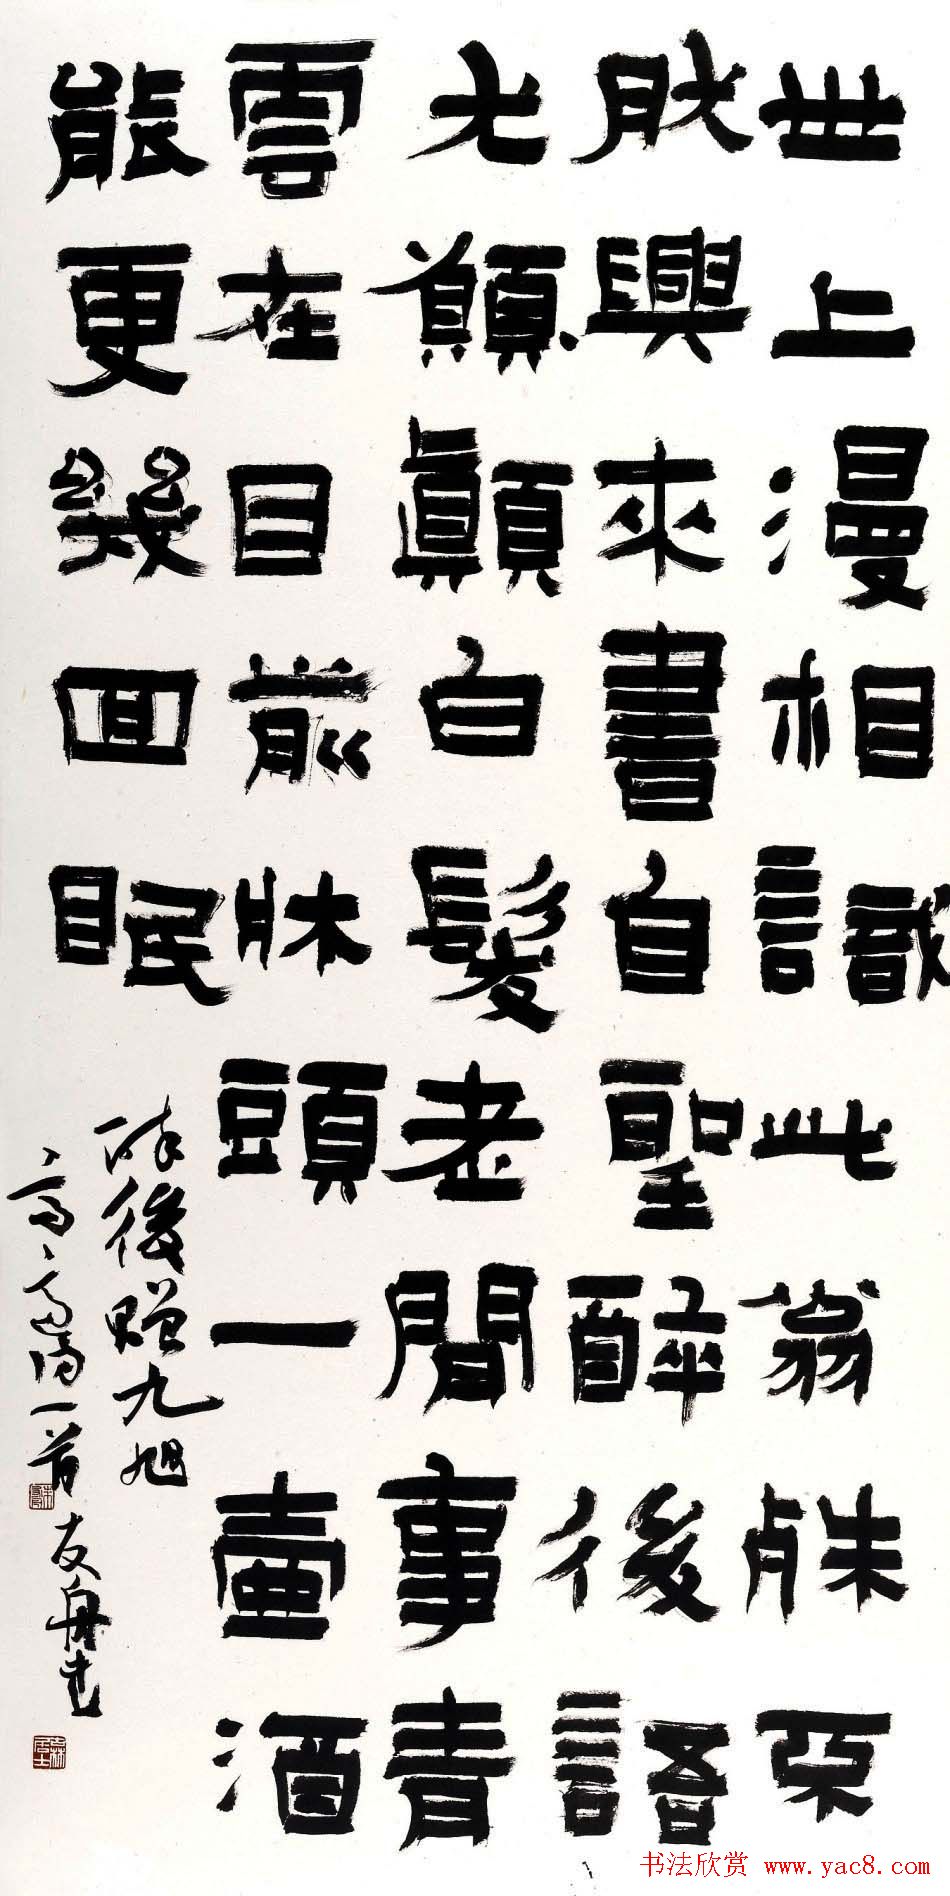 世上漫相識此翁殊不
肰興來書自聖醉後語
尤顛顛白髮老間事青
雲在目前牀頭一壺酒
能更幾回眠
醉後贈九旭
高適詩一首 友舟書
书法欣赏 www.yac8.com